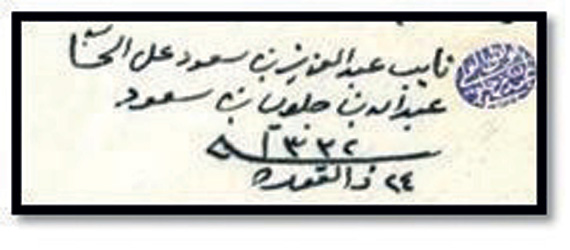 نايب عبد العزيز بن سعود على الحسا
عبد الله بن جلوي بن سعود
١٣٣٢
٢٤ ذالقعده